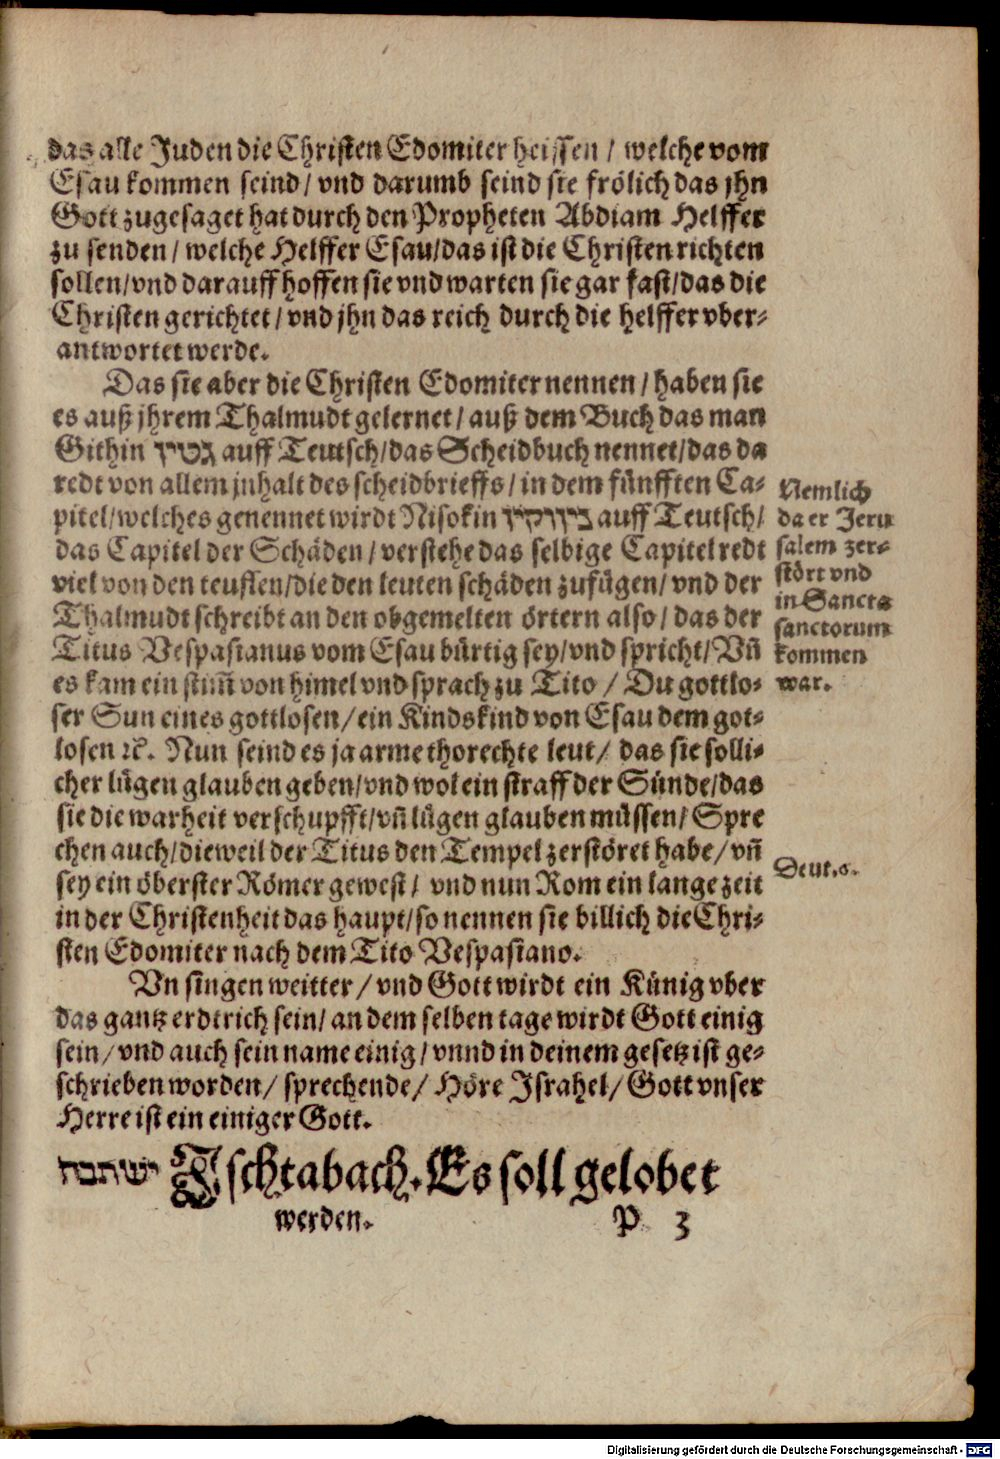 das alle Juden die Christen Edomiter heissen / welche vom
Esau kommen seind / vnd darumb seind sie frölich das jhn
Gott zugesaget hat durch den Propheten Abdiam Helffer
zu senden / welche Helffer Esau / das ist die Christen richten
sollen / vnd darauff hoffen sie vnd warten sie gar fast / das die
Christen gerichtet / vnd jhn das reich durch die helffer vber-
antwortet werde.
Das sie aber die Christen Edomiter nennen / haben sie
es auß jhrem Thalmudt gelernet / auß dem Buch das man
Githin גטין auff Teutsch / das Scheidbuch nennet / das da
redt von allem jnhalt des scheidbrieffs / in dem fünfften Ca-
pitel / welches genennet wirdt Nisokin ניזוקין auff Teutsch /
das Capitel der Schäden / verstehe das selbige Capitel redt
viel von den teuflen / die den leuten schäden zufügen / vnd der
Thalmudt schreibt an den obgemelten örtern also / das der
Titus Vespasianus vom Esau bürtig sey / vnd spricht / Vñ
es kam ein stim̃ von himel vnd sprach zu Tito / Du gottlo-
ser Sun eines gottlosen / ein Kindskind von Esau dem got-
losen ꝛc. Nun seind es ja arme thorechte leut / das sie solli-
cher lügen glauben geben / vnd wol ein straff der Sünde / das
sie die warheit verschupfft / vñ lügen glauben müssen / Spre
chen auch / dieweil der Titus den Tempel zerstöret habe / vñ
sey ein öberster Römer gewest / vnd nun Rom ein lange zeit
in der Christenheit das haupt / so nennen sie billich die Chri-
sten Edomiter nach dem Tito Vespasiano.
Vn singen weitter / vnd Gott wirdt ein Künig vber
das gantz erdtrich sein / an dem selben tage wirdt Gott einig
sein / vnd auch sein name einig / vnnd in deinem gesetz ist ge-
schrieben worden / sprechende / Höre Israhel / Gott vnser
Herre ist ein einiger Gott.
ישתבח Ischtabach. Es soll gelobet
werden. P 3
Nemlich
da er Jeru
salem zer-
stört vnd
in Sancta
sanctorum
kommen
war.
Deut. 6.
Digitalisierung gefördert durch die Deutsche Forschungsgemeinschaft - DFG